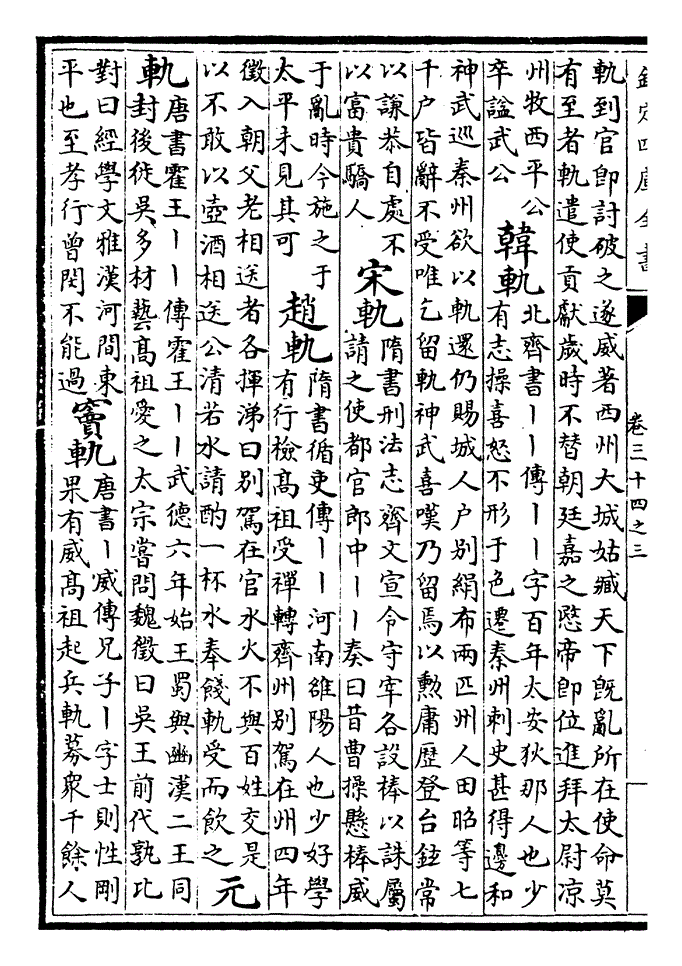 欽定四庫全書
卷三十四之三
軌到官即討破之遂威著西州大城姑臧天下既亂所在使命莫
有至者軌遣使貢獻歲時不替朝廷嘉之愍帝即位進拜太尉凉
州牧西平公
卒諡武公
韓軌
北齊書丨丨傳丨丨字百年太安狄那人也少
有志操喜怒不形于色遷秦州刺史甚得邊和
神武巡秦州欲以軌還仍賜城人户别絹布兩匹州人田昭等七
千户皆辭不受唯乞留軌神武喜嘆乃留焉以勲庸歴登台鉉常
以謙恭自處不
以富貴驕人
宋軌
隋書刑法志齊文宣令守宰各設棒以誅屬
請之使都官郎中丨丨奏曰昔曹操懸棒威
于亂時今施之于
太平未見其可
趙軌
隋書循吏傳丨丨河南雒陽人也少好學
有行檢髙祖受禪轉齊州别駕在州四年
徵入朝父老相送者各揮涕曰别駕在官水火不與百姓交是
以不敢以壺酒相送公清若水請酌一杯水奉餞軌受而飲之
元
軌
唐書霍王丨丨傳霍王丨丨武德六年始王蜀與豳漢二王同
封後徙吳多材藝髙祖愛之太宗嘗問魏徵曰吳王前代孰比
對曰經學文雅漢河間東
平也至孝行曾閔不能過
竇軌
唐書丨威傳兄子丨字士則性剛
果有威髙祖起兵軌募衆千餘人